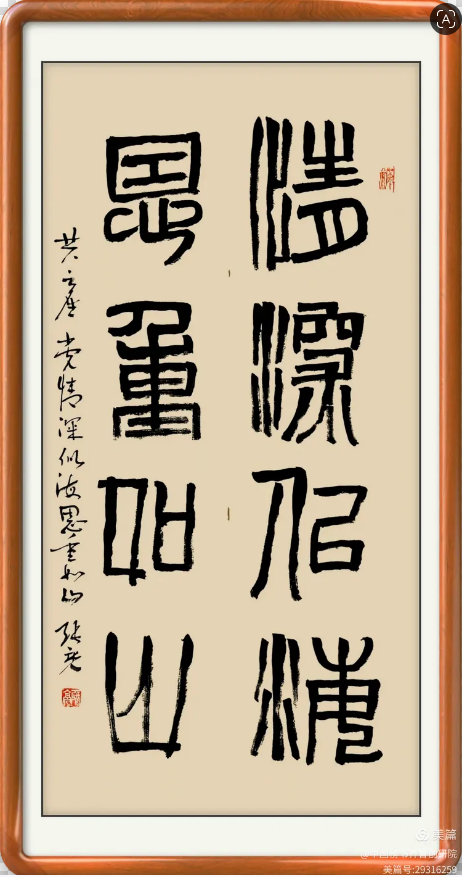 情深似海
恩重如山
共產党情深似海恩重如山 张
美篇
美篇号:29316259